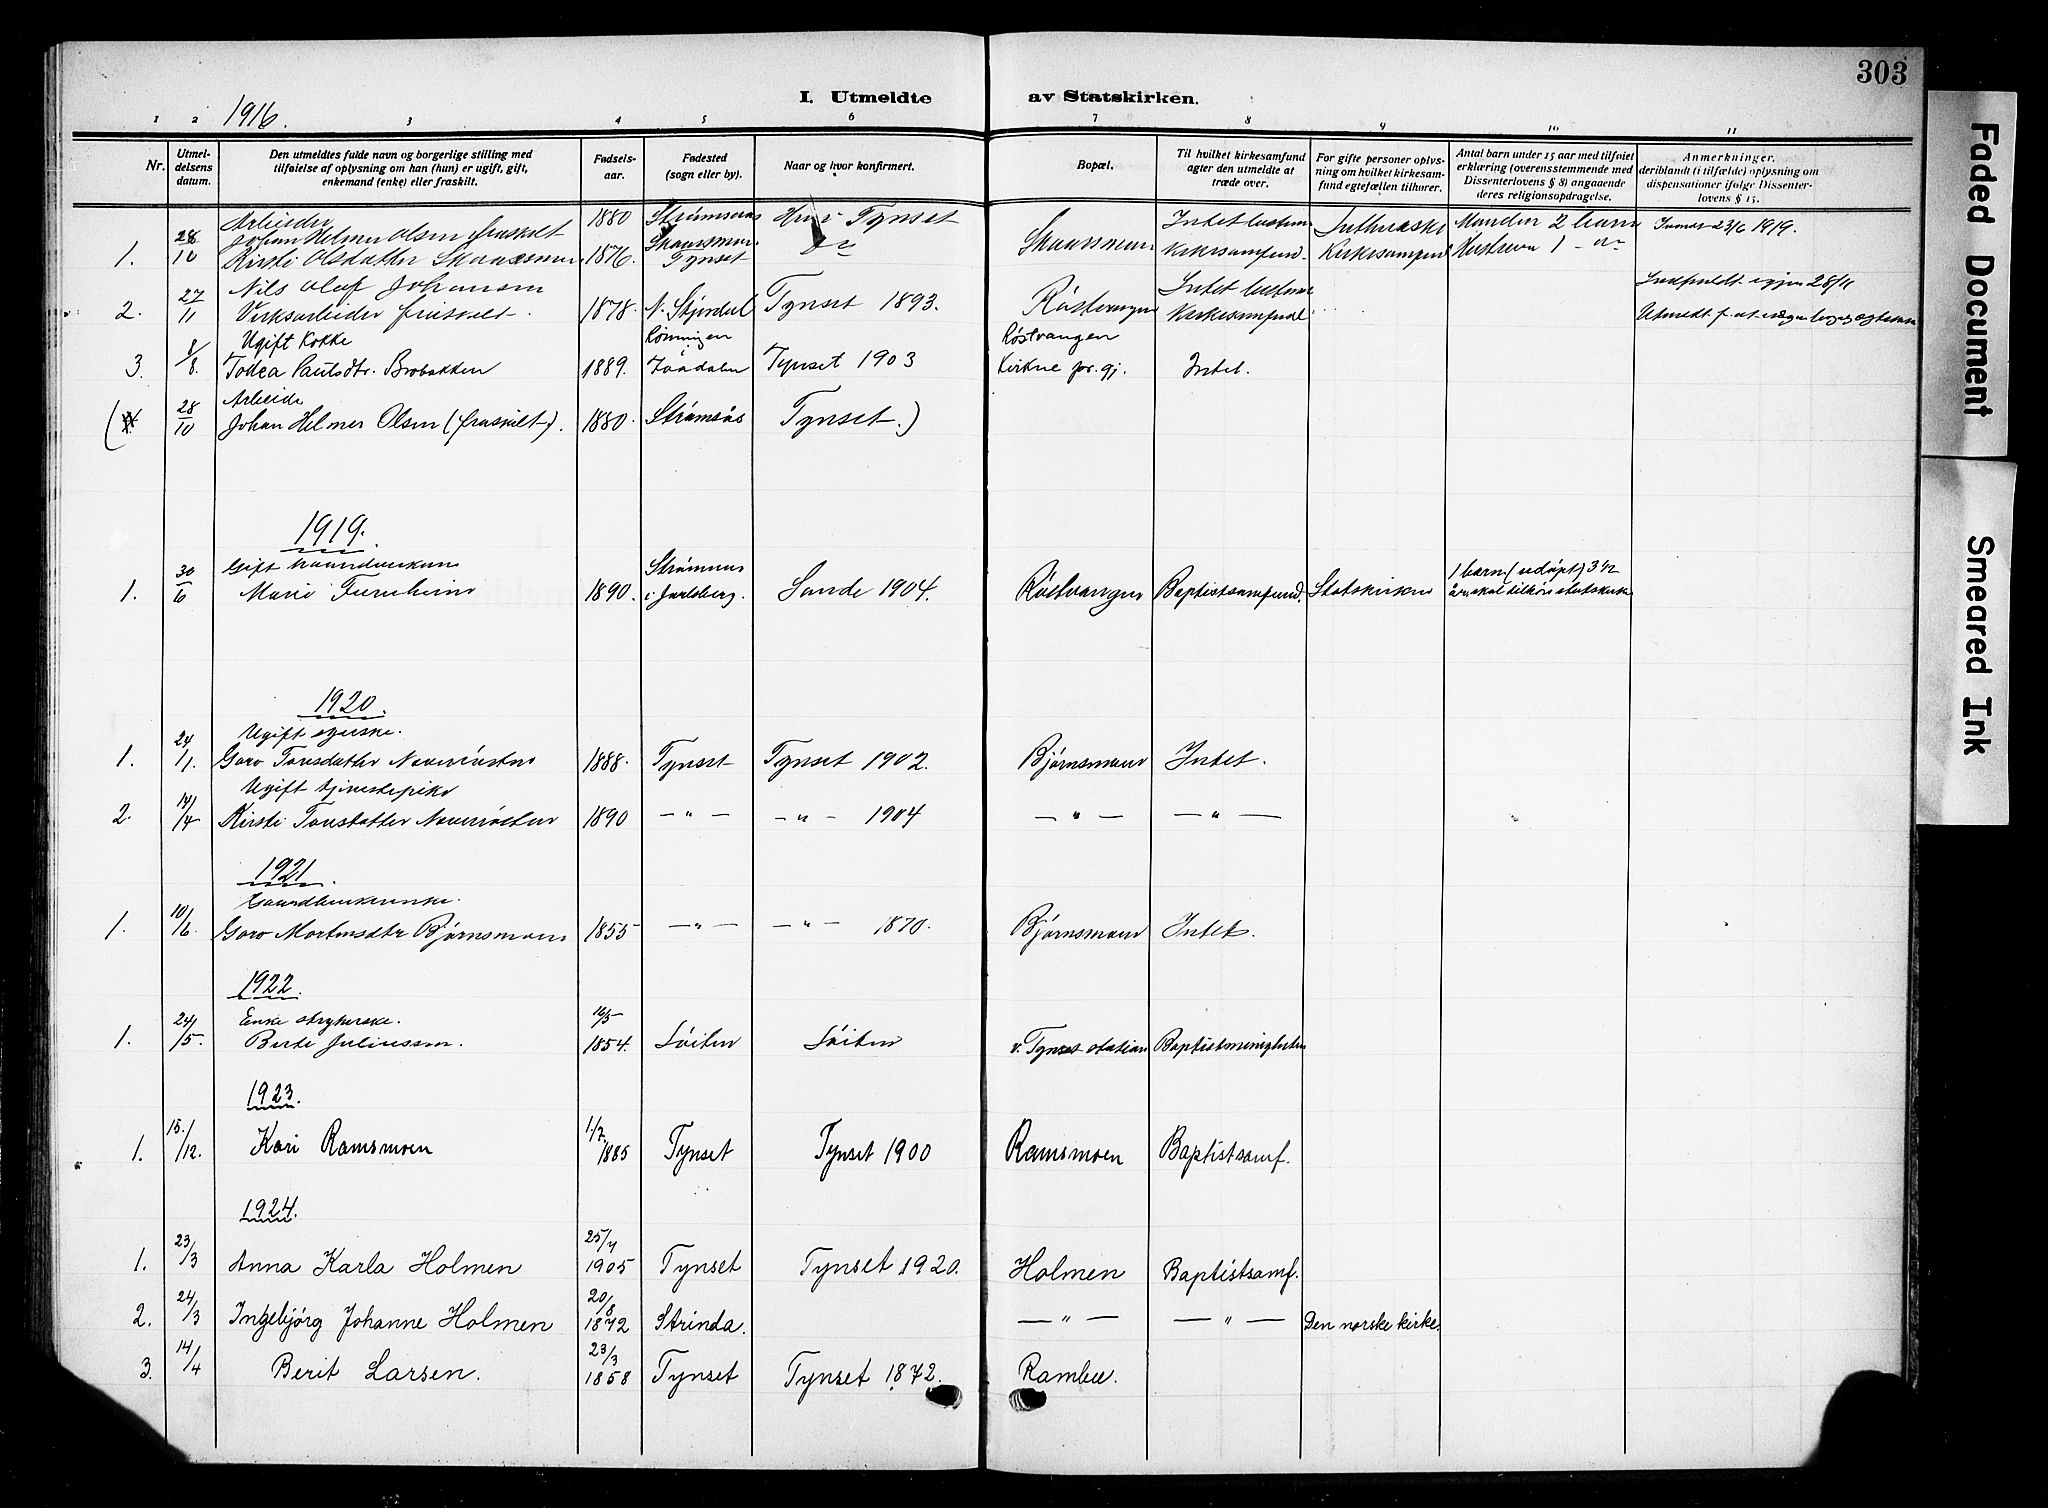 303
I. Utmeldte av Statskirken.
1916.
1 2 3 4 5 6 7 8 9 10 11
Nr.
Utmel-
delsens
datum.
Den utmeldtes fulde navn og borgerlige stilling med
tilføielse af oplysning om han (hun) er ugift, gift,
enkemand (enke) eller fraskilt.
Fødsels-
aar.
Fødested
(sogn eller by).
Naar og hvor konfirmert.
Bopæl.
Til hvilket kirkesamfund
agter den utmeldte at
træde over.
For gifte personer oplys-
ning om hvilket kirkesam-
fund egtefællen tilhører.
Antal barn under 15 aar med tilføiet
erklæring (overensstemmende med
Dissenterlovens § 8) angaaende
deres religionsopdragelse.
Anmerkninger,
deriblandt (i tilfælde) oplysning om
dispensationer ifølge Dissenter-
lovens § 15.
Arbeider 1880 Strømsøs Tynset Intet bestemt Lutherske Manden 2 barn 23/6 1919.
1. 28/10 Johan Helmer Olsen fraskilt
Kirsti Olsdatter Skaasmoen 1876. Tynset Skaasmoen Kirkesamfund. Kirkesamfund Hustruen 1 -"-
Nils Olaf Johansen Intet bestemt igjen 28/11
2. 27/11 Verksarbeider fraskilt. 1878. N. Stjørdal Tynset 1893. Røstvangen Kirkesamfund Utmeldt
Ugift kokke Røstvangen
3. 8/8. Brobakken 1889. Tynset 1903 Kirkne Intet.
Arbeide
( 28/10 Johan Helmer Olsen (fraskilt). 1880. Strømsøs Tynset.)
1919.
Gift Strømmen 1 barn (udøpt) 3 1/2
1. 30/6 Marie Furuheim 1890. i Jarlsberg. Sande 1904. Røstvangen Baptistsamfund. Statskirken år skal tilhøre statskirke
1920.
Ugift
1. 24/1. Goro Tonsdatter 1888. Tynset Tynset 1902. Bjørnsmoen Intet.
Ugift tjenestepike
2. 14/4 Kirsti Tonsdatter 1890 — " — — " — 1904 — " — — " —
1921.
1. 10/6. Goro Mortensdtr Bjørnsmoen 1855 — " — — " — 1870. Bjørnsmoen Intet.
1922.
Enke strykerske. 16/5
1. 24/5. Berte Juliussen. 1854. Løiten Løiten v. Tynset station Baptistmenigheten
1923.
1. 15./12. Kari Ramsmoen 1./7. 1885 Tynset Tynset 1900 Ramsmoen Baptistsamf.
1924.
1. 23/3 Anna Karla Holmen 25/4 1905 Tynset Tynset 1920. Holmen Baptistsamf.
2. 24/3 Ingebjørg Johanne Holmen 20/8 1872 Strinda. — " — — " — Den norske kirke.
3. 14/4 Berit Larsen. 23/3 1858 Tynset Tynset 1872. Rambu.
Faded Document
Smeared Ink